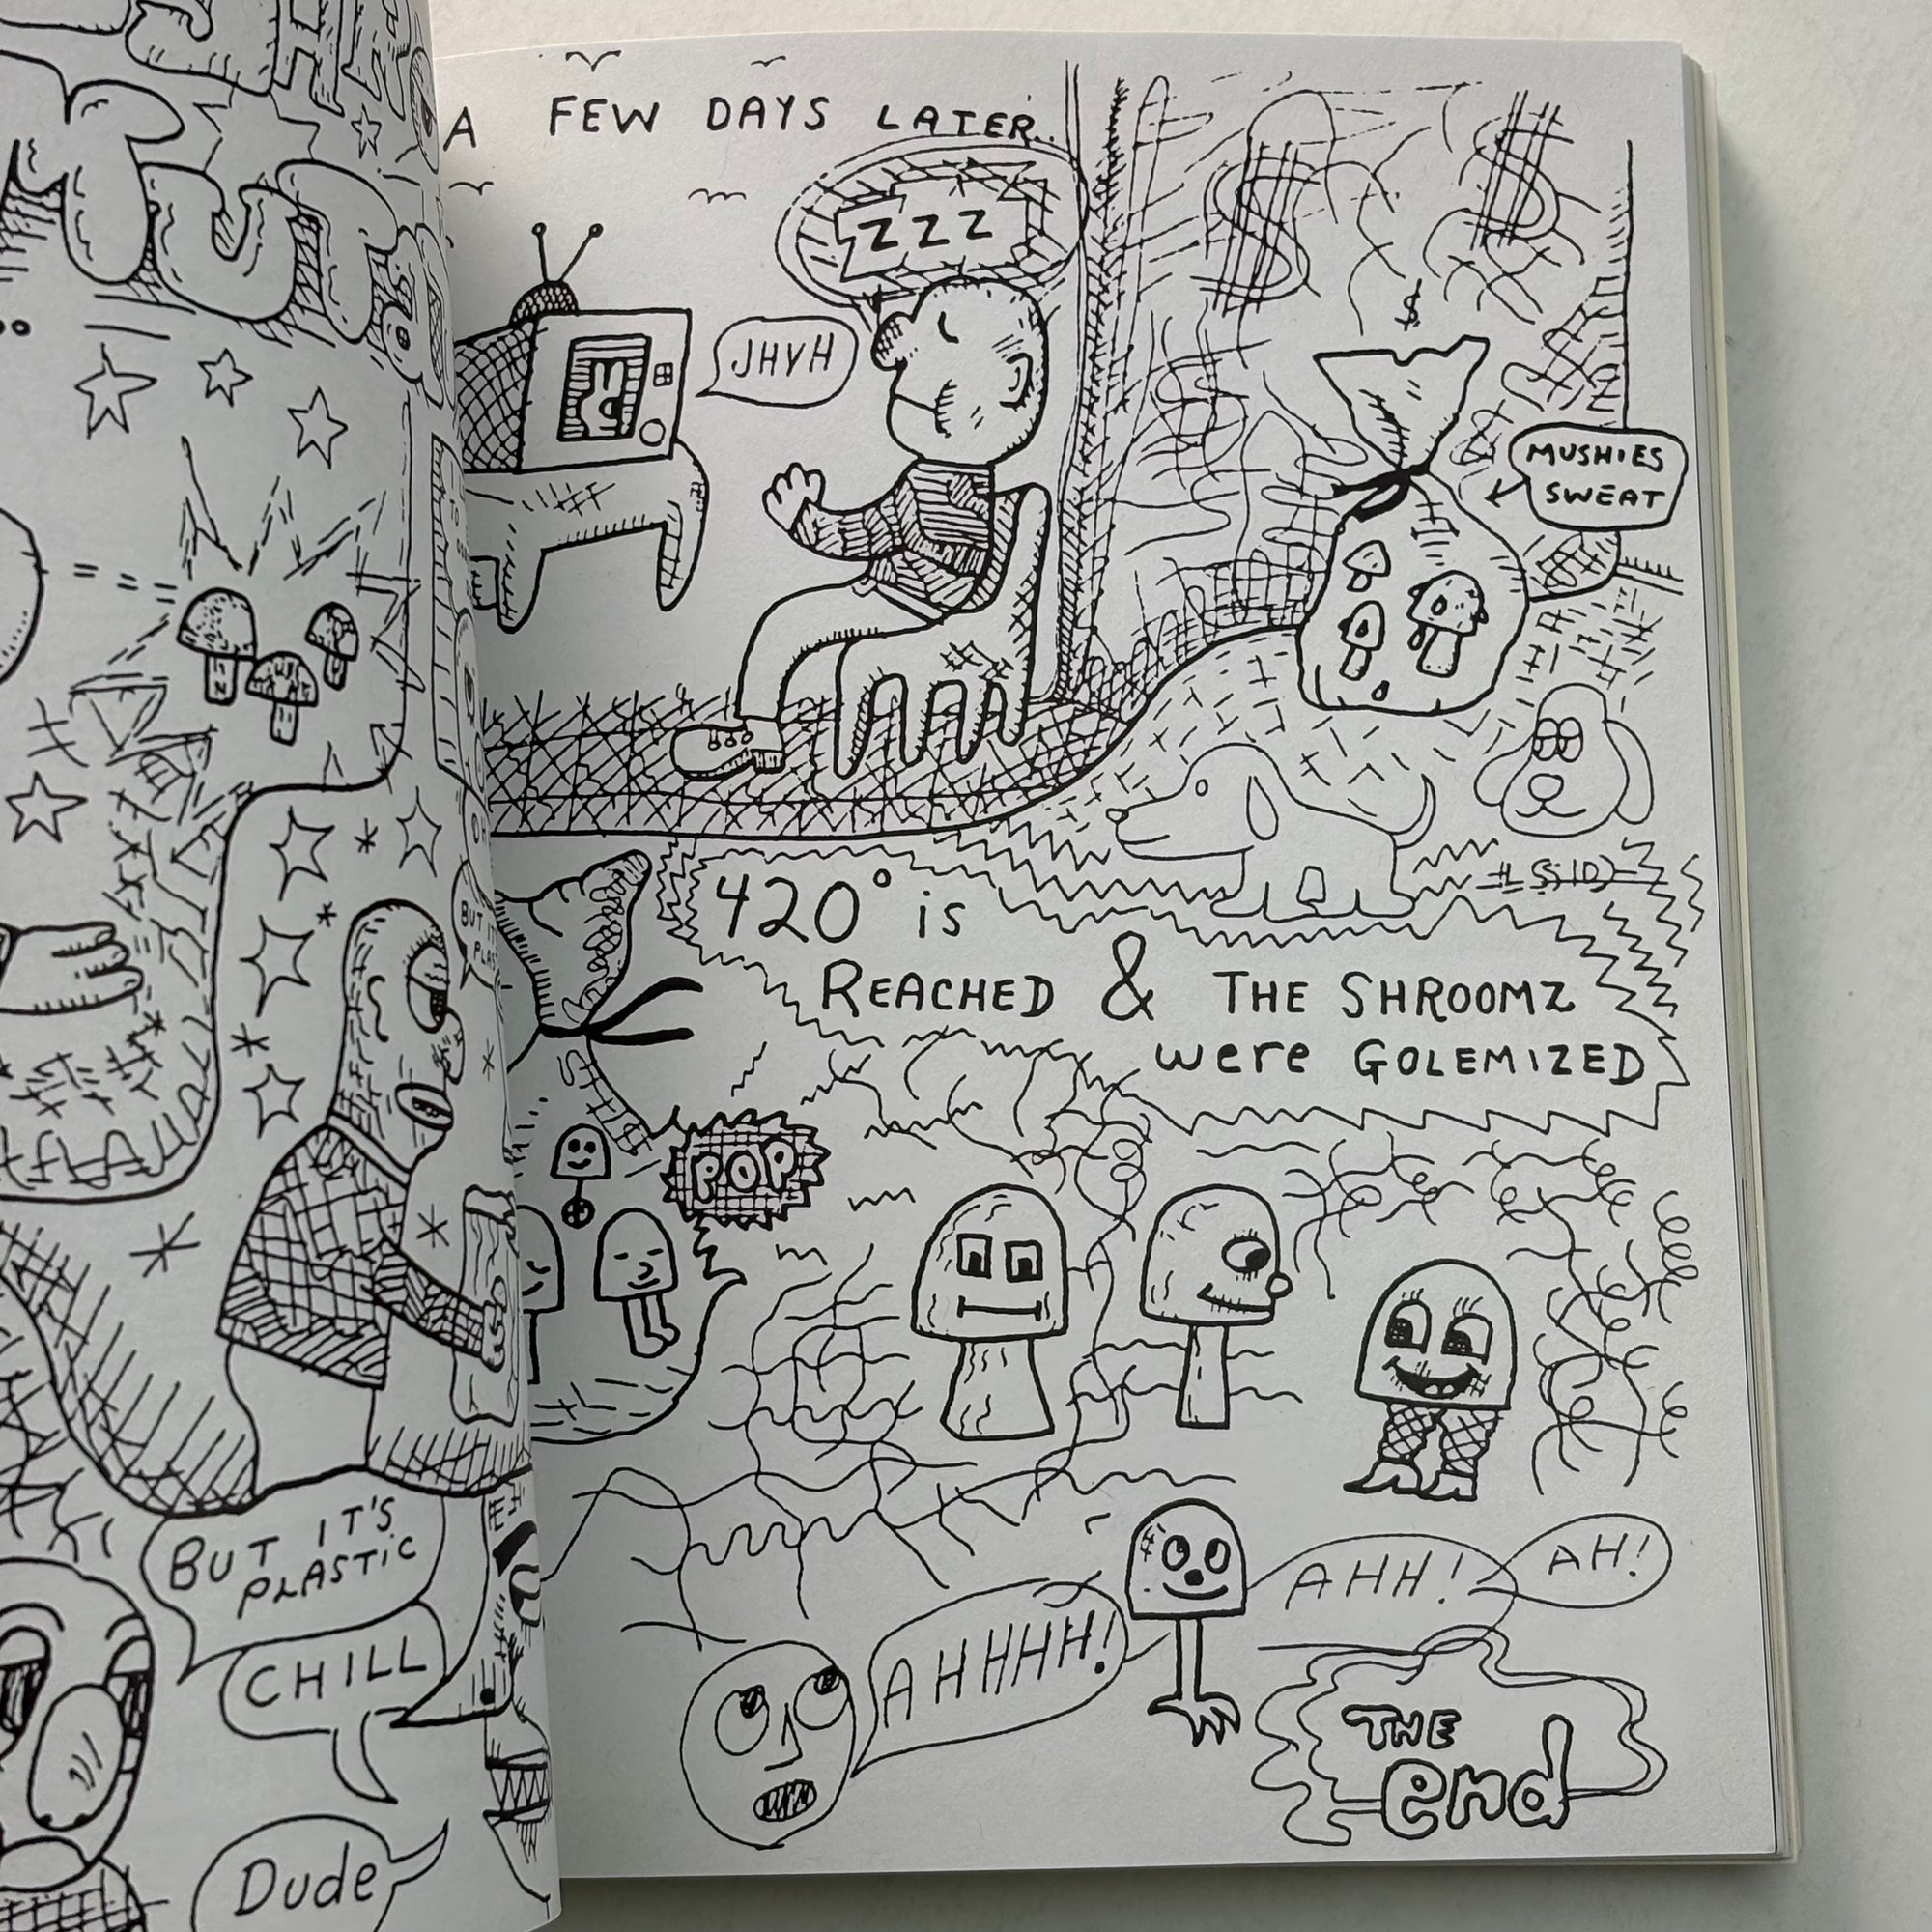 BUT IT'S
PLASTIC
CHILL
Dude
A FEW DAYS LATER..
ZZZ
JHVH
$
$
$
MUSHIES
SWEAT
420° is
REACHED & THE SHROOMZ
were GOLEMIZED
POP
AHHHH!
AHH!
AH!
THE
end